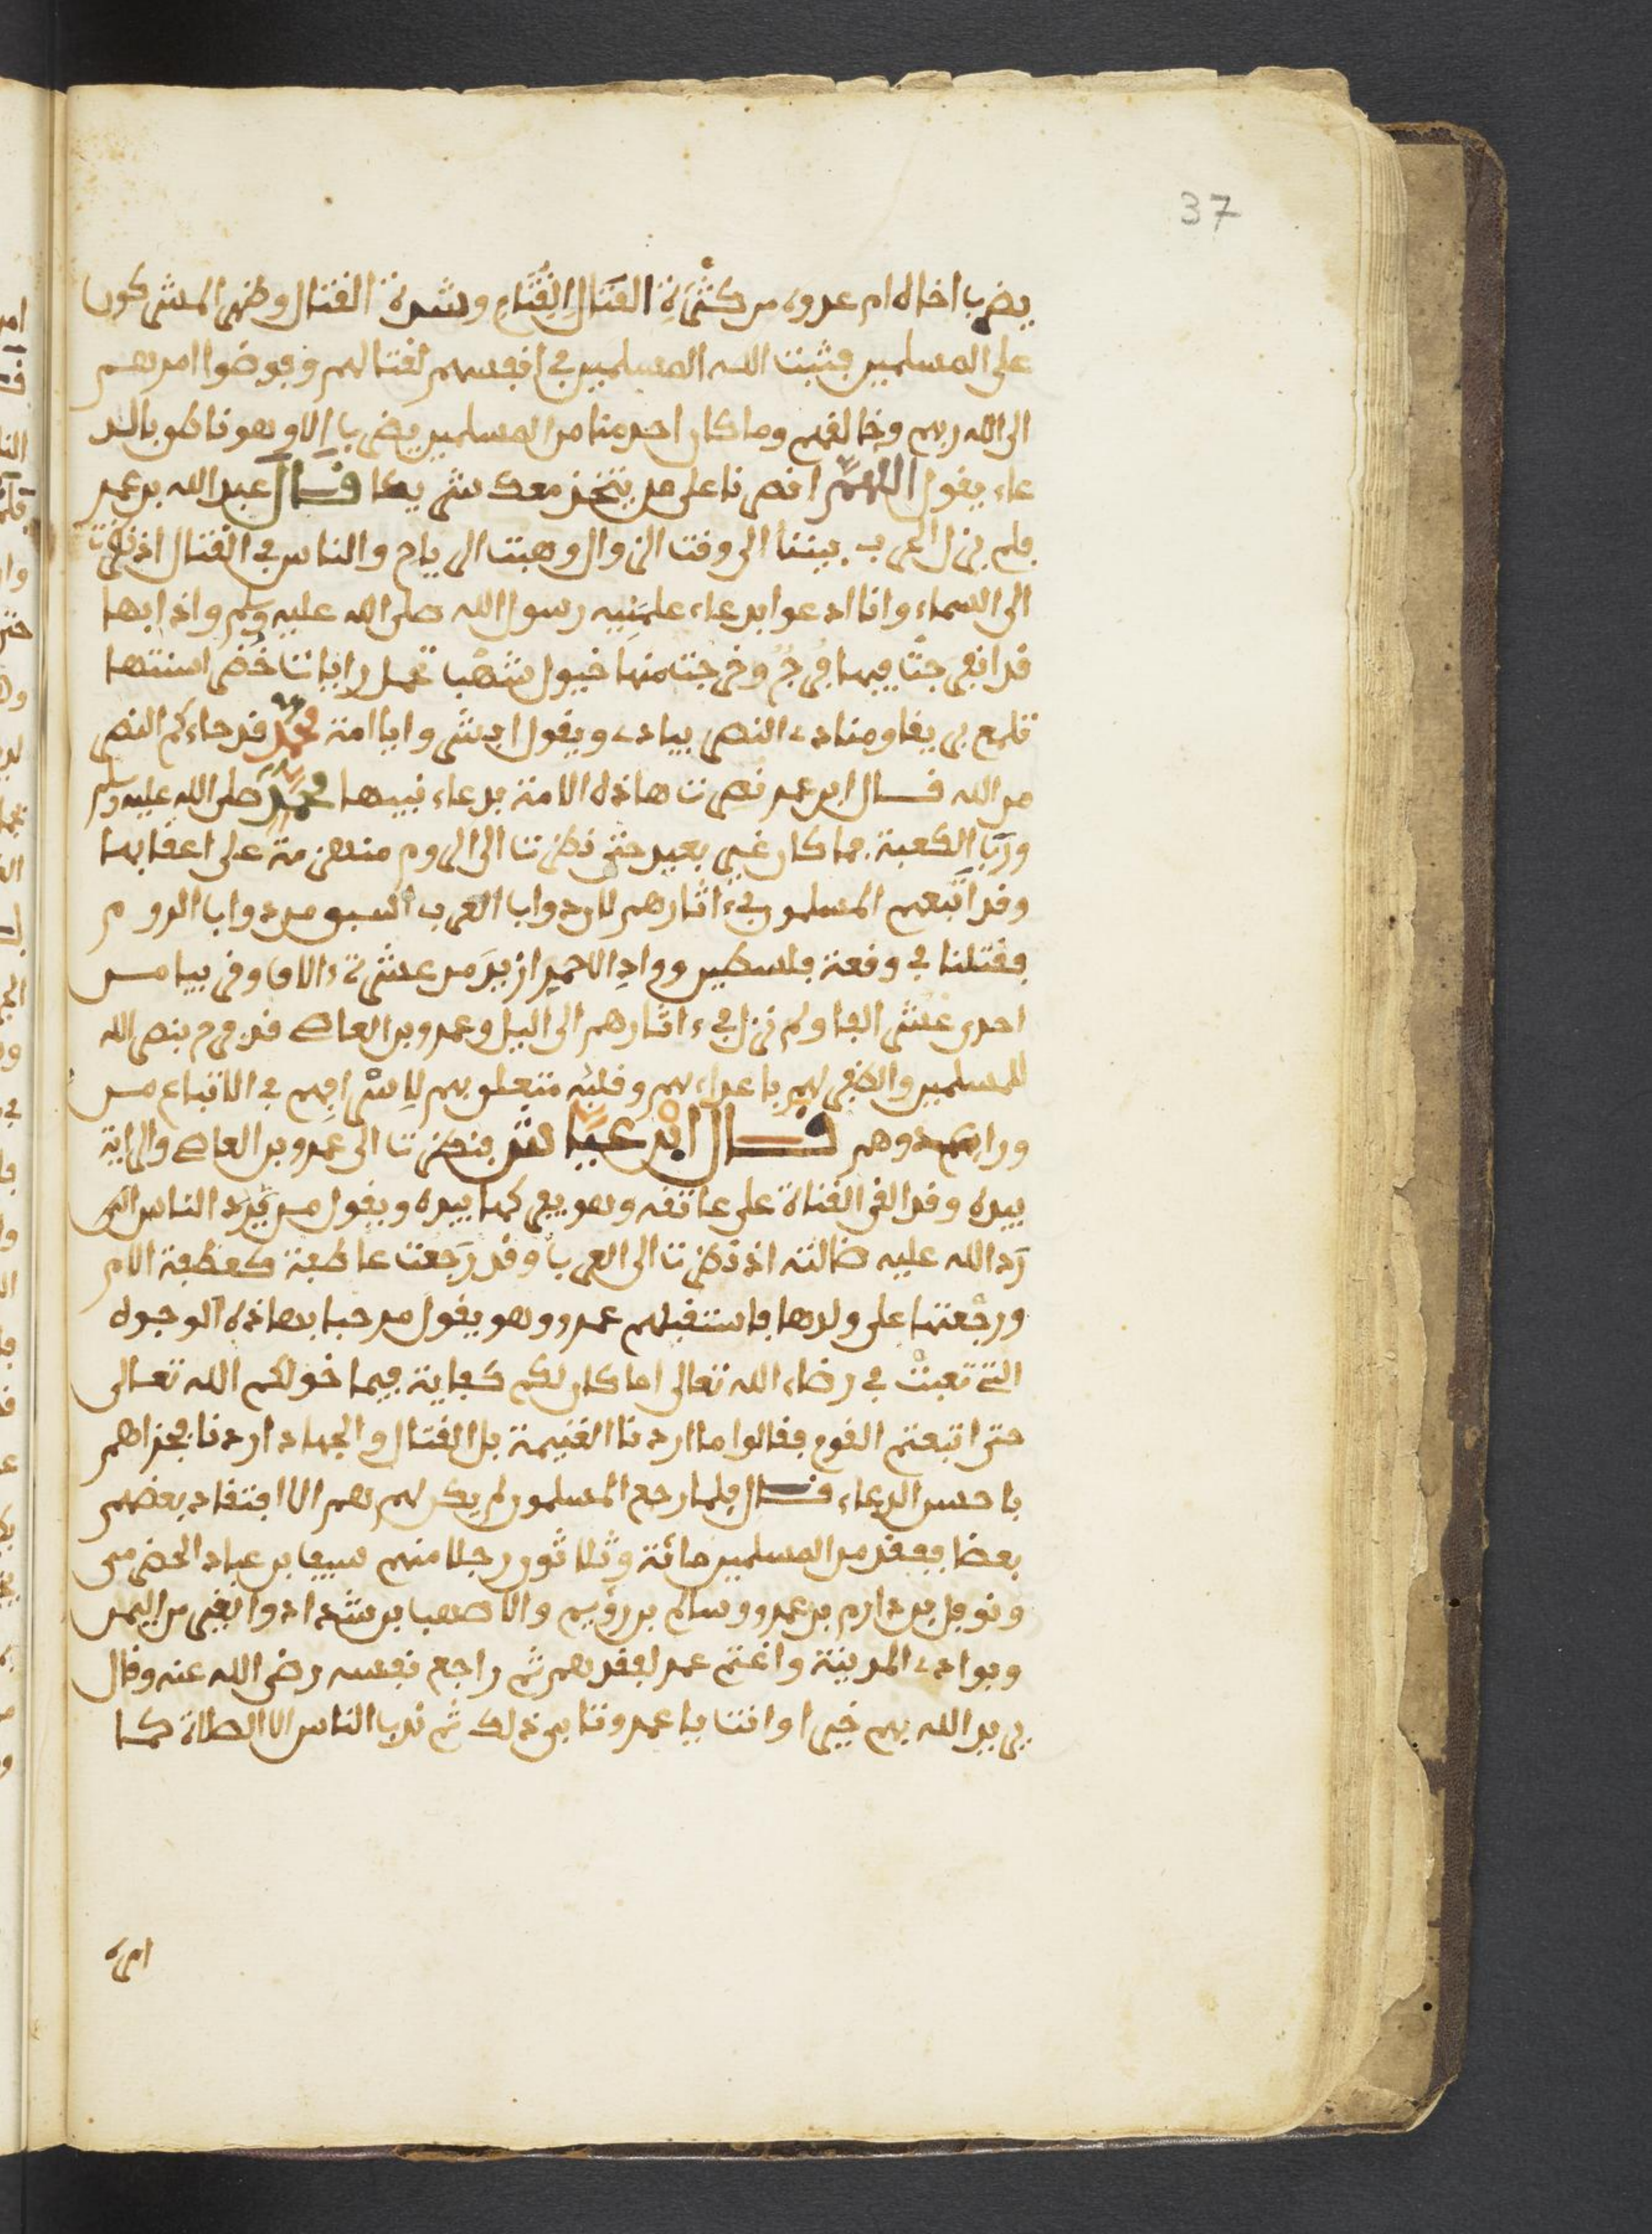 37
يضرب اخاه ام عدوه من كثرة القتال القتام وشدة القتال وظهر المشركون
على المسلمين فثبت الله المسلمين في انفسهم لقتالهم وفوضوا امرهم
الى الله ربهم وخالقهم وما كان احد منا من المسلمين يضرب الا وهو ناطق بالد
عاء يقول اللهم انصرنا على من يتخذ معك شريكا قال عبد الله بن عمر
فلم يزل الحرب بيننا الى وقت الزوال وهبت الرياح والناس في القتال اذ نظرت
الى السماء وانا ادعوا بدعاء علمنيه رسول الله صلى الله عليه وسلم واذا بها
قد انفرجت فيها فرج وخرجت منها خيول شهب تحمل رايات خضر اسنتها
تلمع بريقا ومنادي النصر ينادي ويقول ابشروا يا امة محمد قد جاءكم النصر
من الله قال ابن عمر نصرت هاذه الامة بدعاء نبيها محمد صلى الله عليه وسلم
ورب الكعبة فما كان غير بعيد حتى نظرت الى الروم منهزمة على اعقابها
وقد اتبعهم المسلمون في ءاثارهم لان دواب العرب اسبق من دواب الروم
فقتلنا في وقعة فلسطين وواد الاحمر ازيد من عشرة ءالاف وقريبا من
احدى عشر الفا ولم نزل في ءاثارهم الى اليل وعمرو بن العاص قد فرح بنصر الله
للمسلمين والظفر لهم باعداءهم وقلبه متعلق بهم لاشرافهم في الاتباع من
وراء عدوهم قال ابن عياش فنظرت الى عمرو بن العاص والراية
بيده وقد القى القناة على عاتقه وهو يعركها بيده ويقول من يرد الناس الي
رد الله عليه ضالته اذ نظرت الى العرب وقد رجعت عاطفة كعطفة الام
ورجعتها على ولدها فاستقبلهم عمرو وهو يقول مرحبا بهاذه الوجوه
التي تعبت في رضاء الله تعالى اما كان لكم كفاية فيما خولكم الله تعالى
حتى اتبعتم القوم فقالوا ما اردنا الغنيمة بل القتال والجهاد اردنا فجزاهم
باحسن الدعاء قال فلما رجع المسلمون لم يكن لهم هم الا افتقاد بعضهم
بعضا ففقد من المسلمين مائة وثلاثون رجلا منهم سيف بن عباد الحضرمي
ونوفل بن دارم بن عمرو وسالم بن رويم والاصهب بن شداد والبقى من اليمن
وبوادي المدينة واغتم عمرو لفقدهم ثم راجع نفسه رضي الله عنه وقال
يريد الله بهم خيرا وانت يا عمرو تابى ذلك ثم ندب الناس الى الصلاة كما
امره